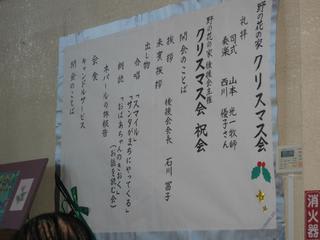 野の花の家 クリスマス会
礼拝
司式 山本 光一牧師
奏楽 西川 優子さん
野の花の家後援会主催
クリスマス会 祝会
開会のことば
挨拶 後援会会長 石川 富子
来賓挨拶
出し物
合唱 「スマイル」
「サンタがまちにやってくる」
朗読 「おばあちゃんのきおく」
(お話を読む会)
ネパールの旅報告
会食
キャンドルサービス
閉会のことば
消火器